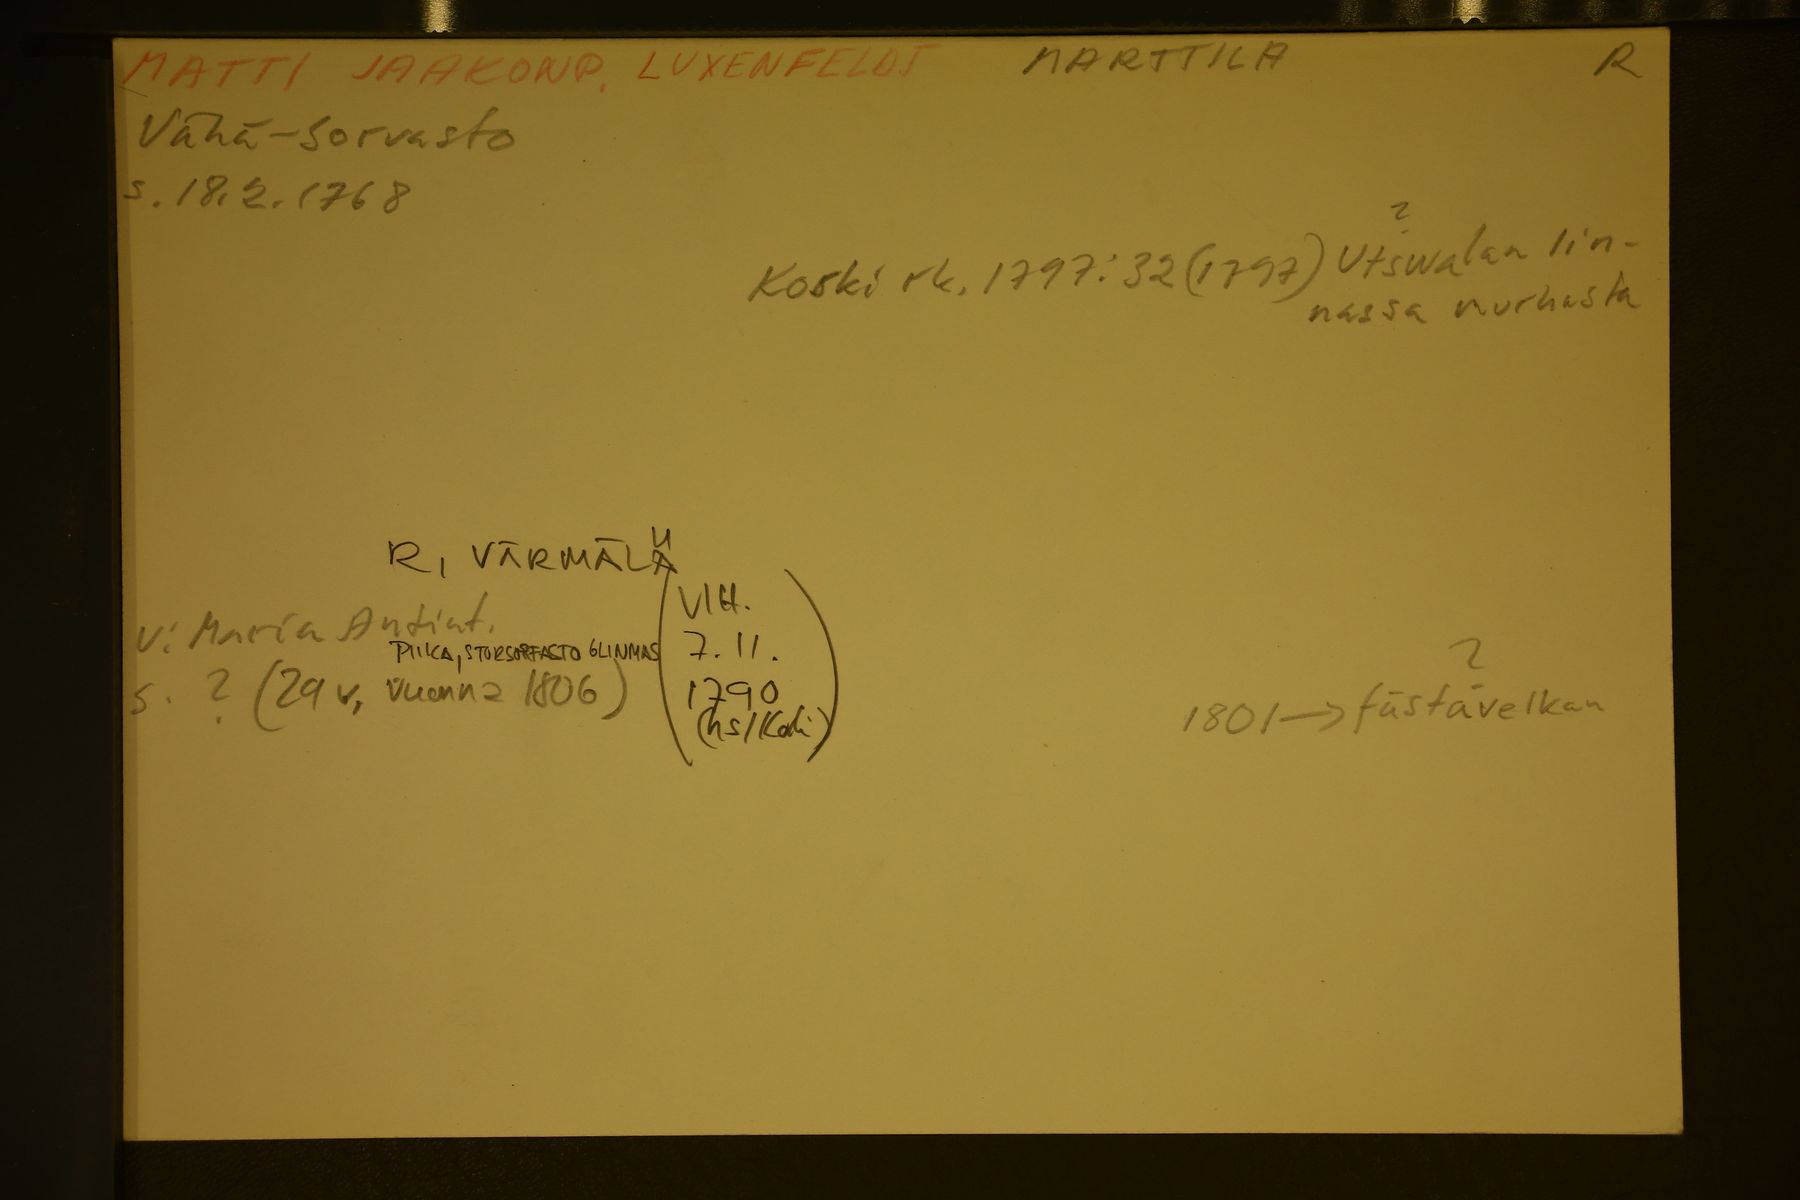 MATTI JAAKONP. LUXENFELDT MARTTILA R
Vähä-Sorvasto
s. 18.2.1768
?
Koski rk. 1797:32 (1797) Utswalan lin-
nassa murhasta
R, VÄRMÄLÄ
V: Maria Antint.
PIIKA, STORSORFASTO
s. ? (29 v, vuonna 1806)
(VIH.
7.11.
1790
(hs/Koski)
?
1801 → fästävelkan